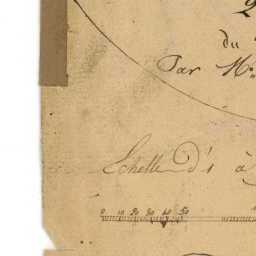 2
du
Par Mr.
Echelle d'1 à
0 10 20 30 40 50